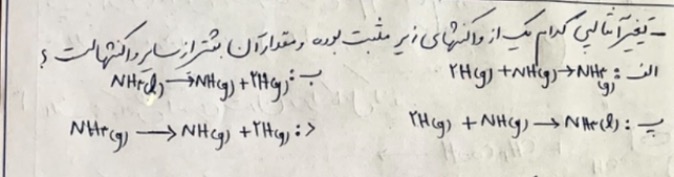 - تغییر آنتالپی کدام یک از واکنشهای زیر مثبت بوده و مقدار آن بیشتر از سایر واکنشهاست ؟
الف: ۲H(g) + NH(g) → NH۳(g)
ب: NH۳(l) → NH(g) + ۲H(g)
پ: ۲H(g) + NH(g) → NH۳(l)
د: NH۳(g) → NH(g) + ۲H(g)